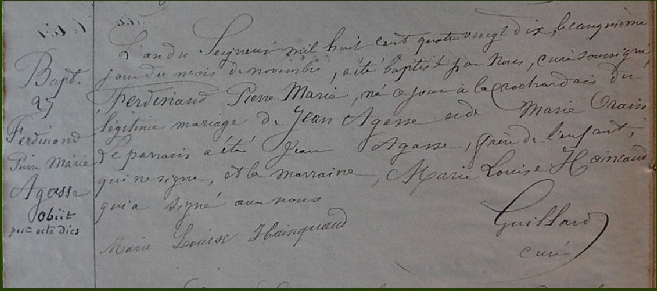 Bapt.
25
Ferdinand
Pierre Marie
Agasse
obiit
post octo dies
L'an du Seigneur mil huit cent quatre vingt dix, le cinquième
jour du mois de novembre, a été baptisé par nous, curé soussigné,
Ferdinand Pierre Marie, né ce jour à la du
légitime mariage de Jean Agasse et de Marie Orain
Le parrain a été Jean Agasse, frère de l'enfant,
qui ne signe, et la marraine, Marie Louise Hainquaud
qui a signé avec nous
Marie Louise Hainquaud
Guillard
curé